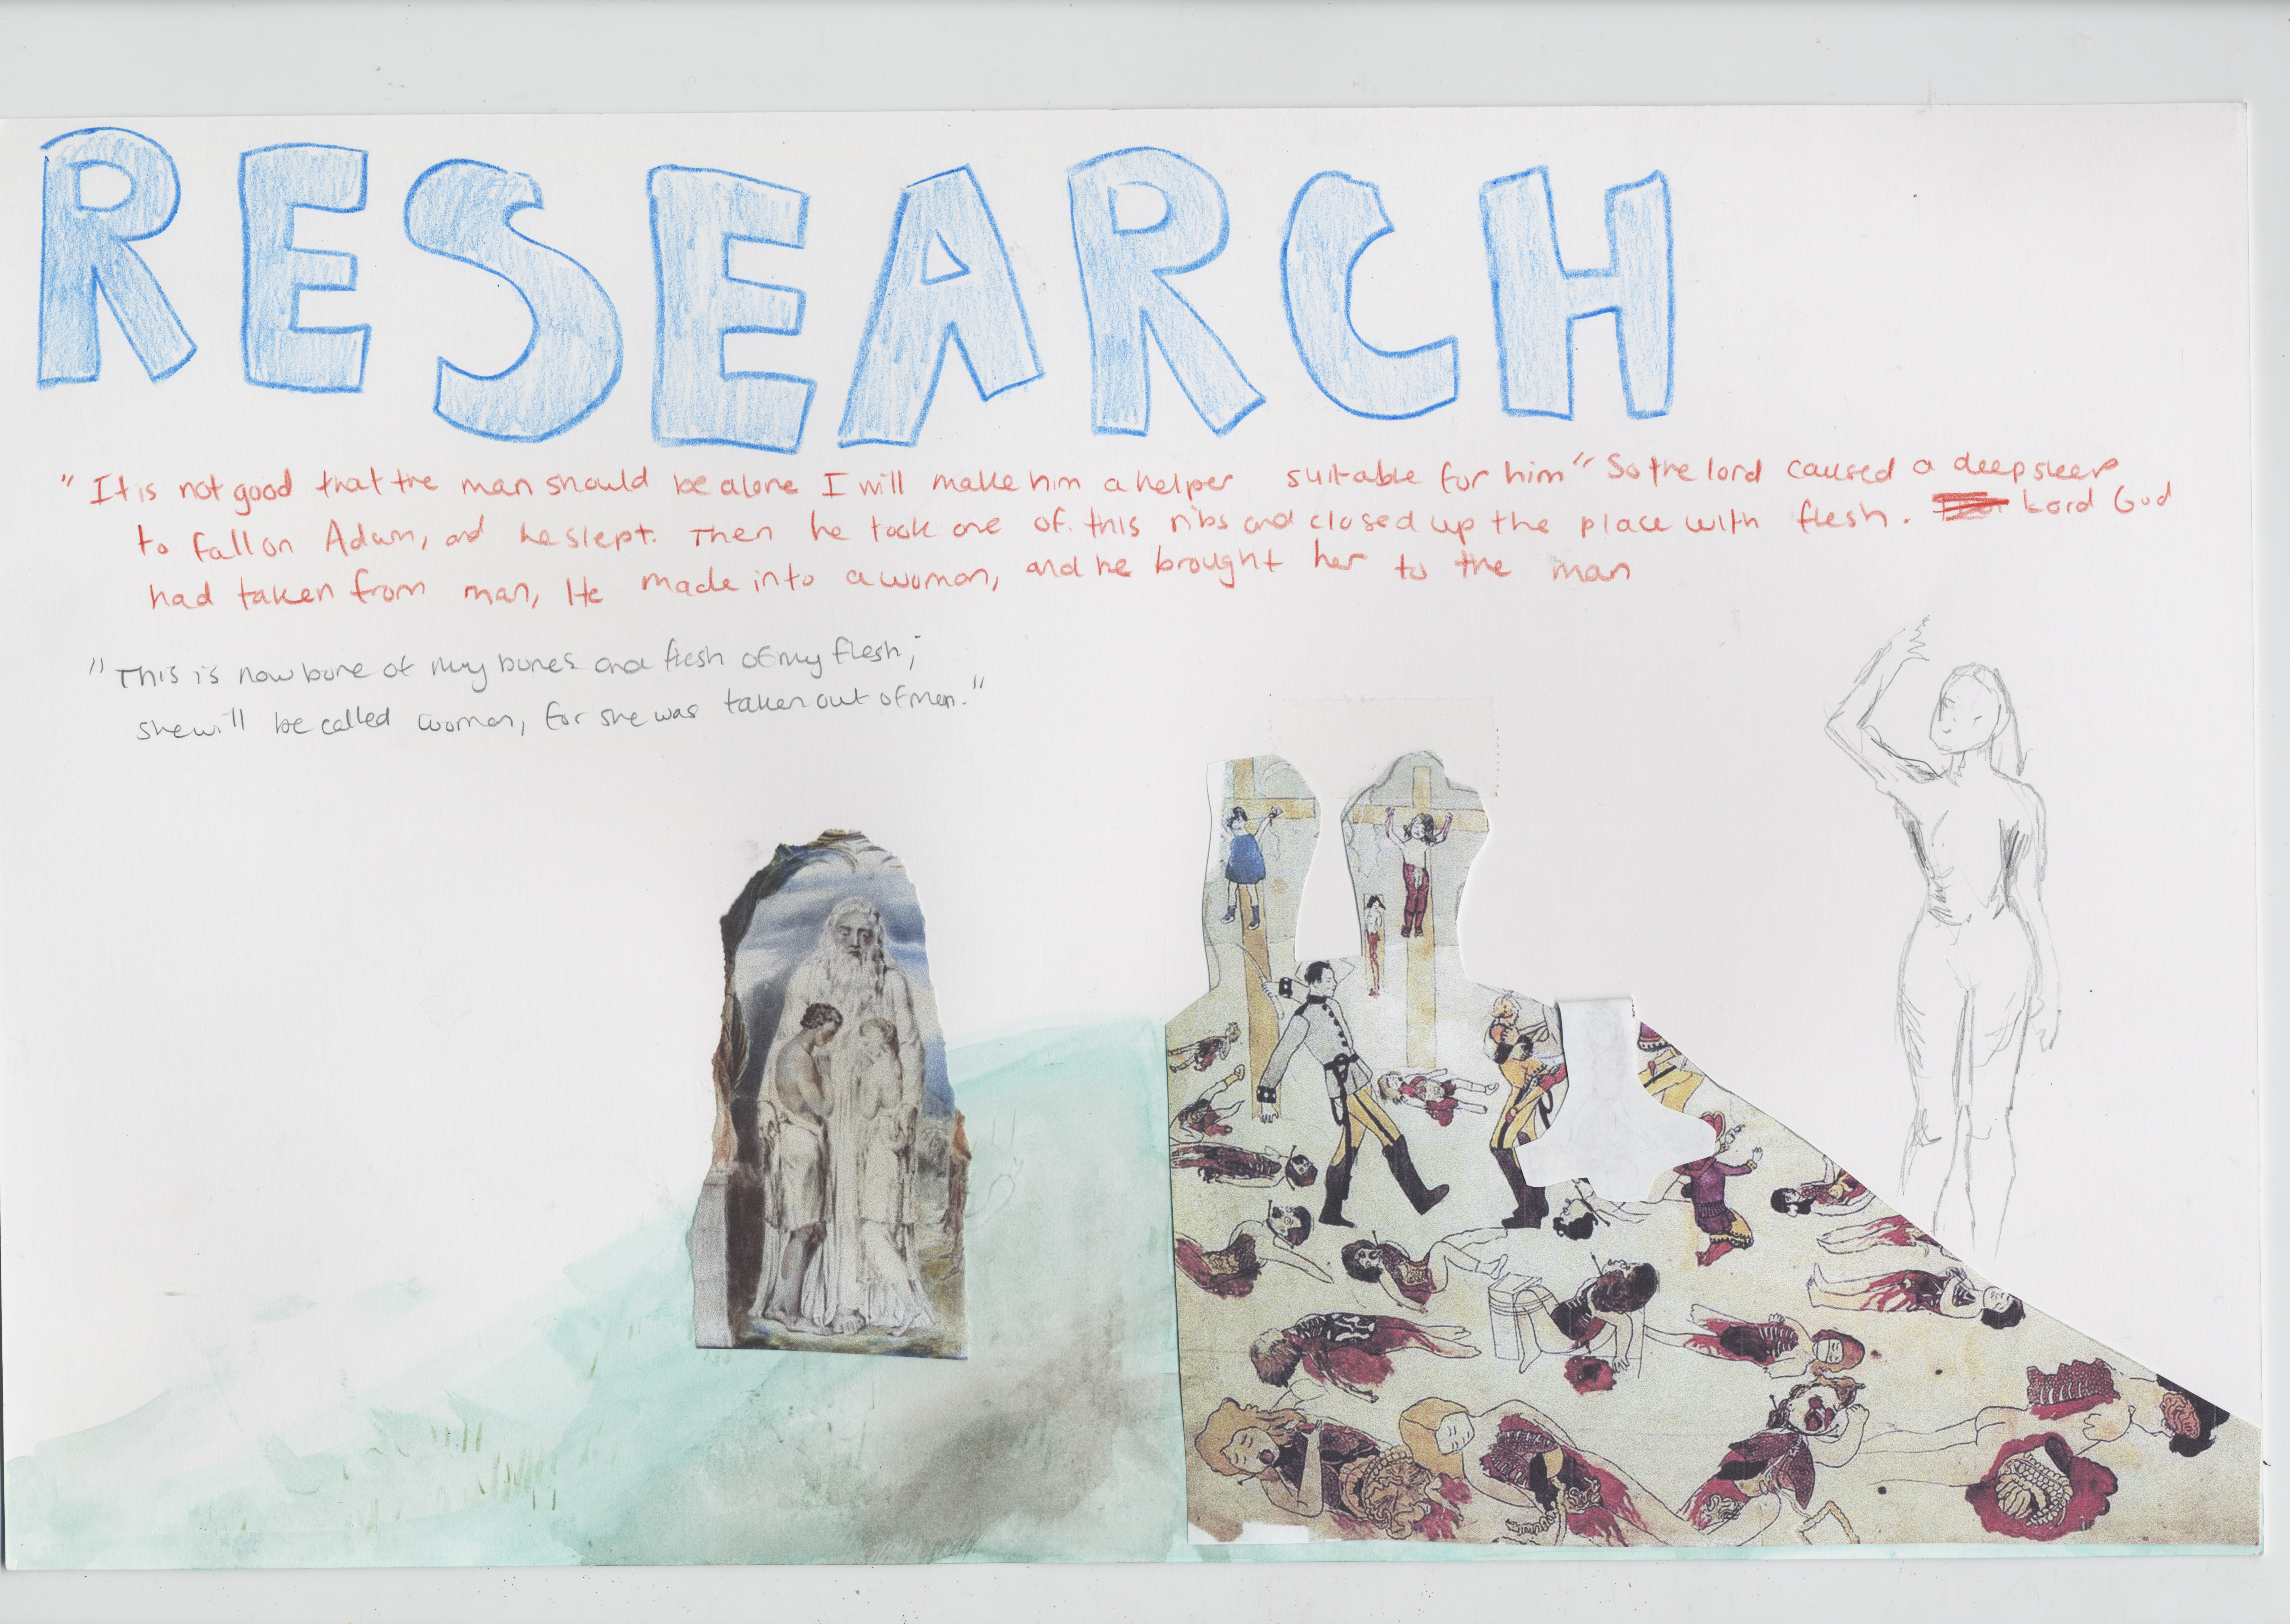 RESEARCH
"It is not good that the man should be alone I will make him a helper suitable for him" So the lord caused a deep sleep
to fall on Adam, and he slept. Then he took one of this ribs and closed up the place with flesh. Lord God
had taken from man, He made into a woman, and he brought her to the man
"This is now bone of my bones and flesh of my flesh;
she will be called woman, for she was taken out of man."